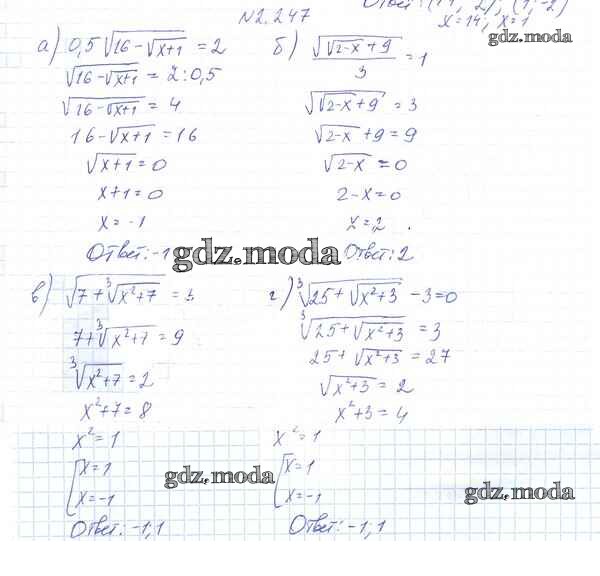 Ответ: (14; 2); (1; -2)
№2.247
x=14; x=1
gdz.moda
а) 0,5√(16-√(x+1)) = 2
√(16-√(x+1)) = 2:0,5
√(16-√(x+1)) = 4
16-√(x+1) = 16
√(x+1) = 0
x+1=0
x=-1
Ответ: -1
б) √(√(2-x)+9)/3 = 1
√(√(2-x)+9) = 3
√(2-x)+9=9
√(2-x) = 0
2-x=0
x=2
Ответ: 2
gdz.moda
в) √(7+∛(x²+7)) = 3
7+∛(x²+7) = 9
∛(x²+7) = 2
x²+7=8
x²=1
[x=1
x=-1
Ответ: -1; 1
gdz.moda
г) ∛(25+√(x²+3)) -3=0
∛(25+√(x²+3)) = 3
25+√(x²+3) = 27
√(x²+3) = 2
x²+3=4
x²=1
[x=1
x=-1
Ответ: -1; 1
gdz.moda